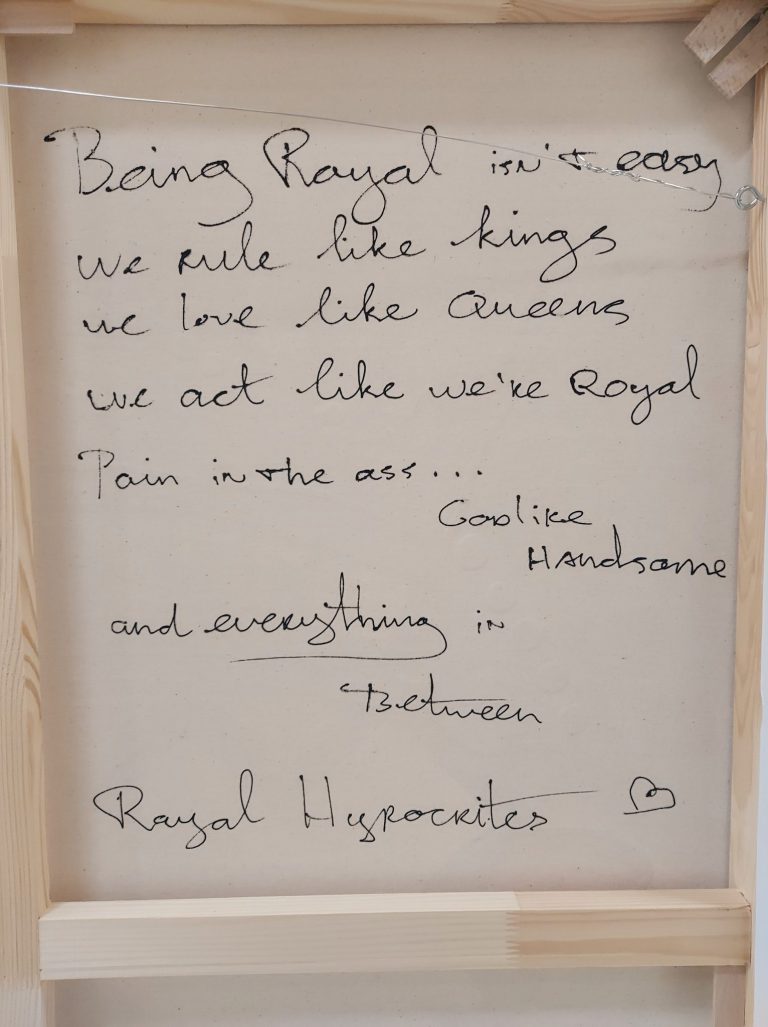 Being Royal isn't easy
we rule like kings
we love like Queens
we act like we're Royal
Pain in the ass...
Godlike
Handsome
and everything in
Between
Royal Hypocrites